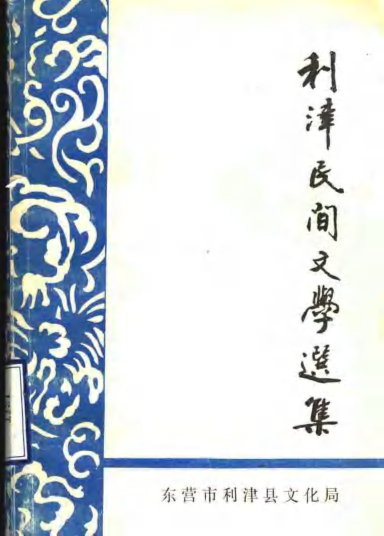 利津民间文學選集
东营市利津县文化局